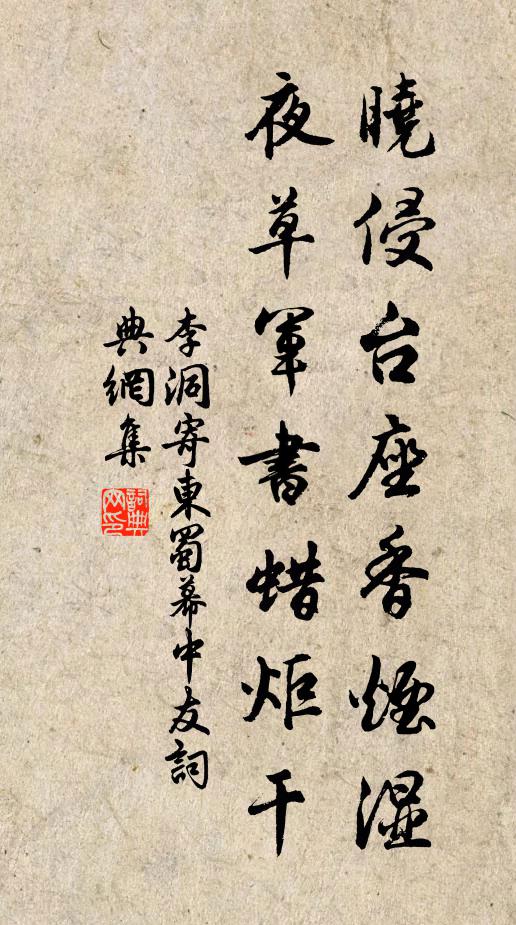 曉侵台座香煙濕
夜草軍書蜡炬干
李洞寄東蜀幕中友詞
典網集
詞典
网印